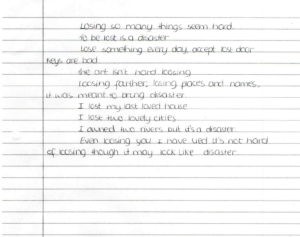 Losing so many things seem hard.
To be lost is a disaster
Lose something every day, accept lost door
keys are bad.
the art isn't hard loosing
Loosing farther, losing places and names,
it was meant to bring disaster
I lost my last loved house
I lost two lovely cities.
I owned two rivers but it's a disaster
Even losing you I have lied it's not hard
of loosing though it may look like disaster